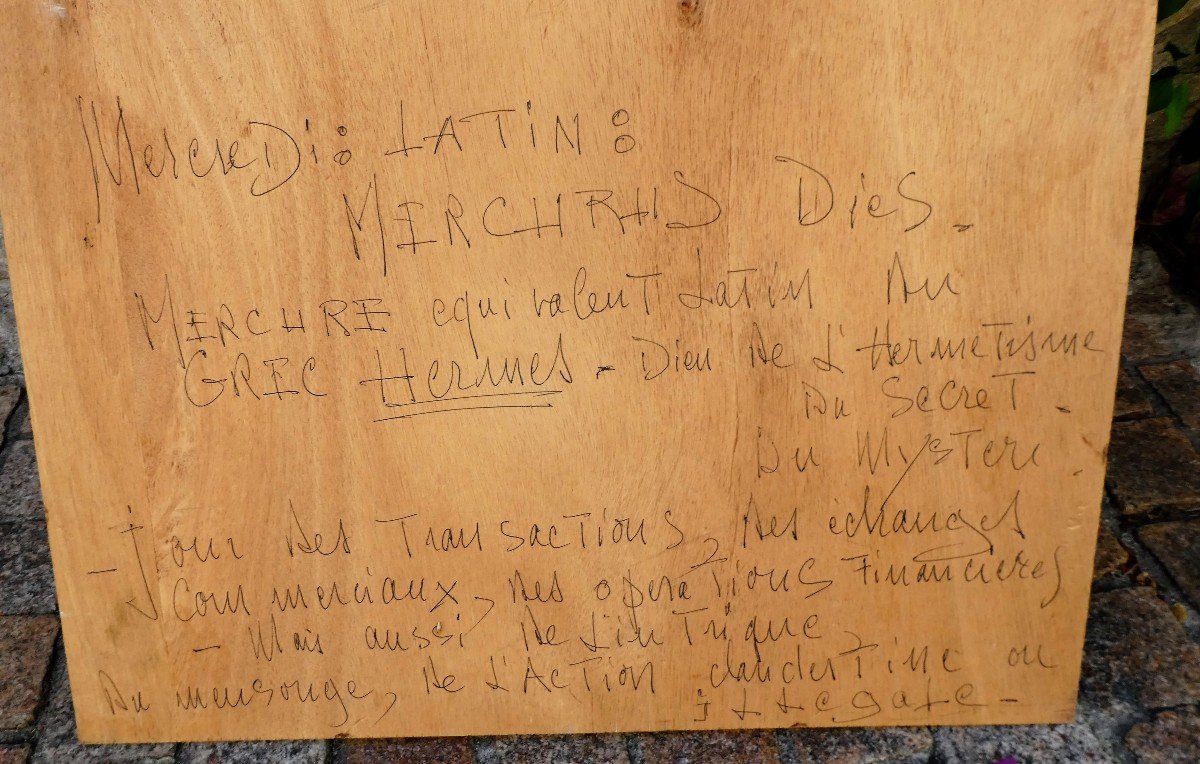 MercreDi : LATIN :
MERCURIUS DieS.
MERCURE equivalent Latin Du
GREC Hermes. Dieu De L'HermeTisme
Du SecreT.
Du MysTere.
- Jour Des TransacTions, Des échanges
Commerciaux, Des operaTions Financieres
- Mais aussi De L'inTrigue,
Du mensonge, De L'AcTion clandesTine ou
iLLegaLe -